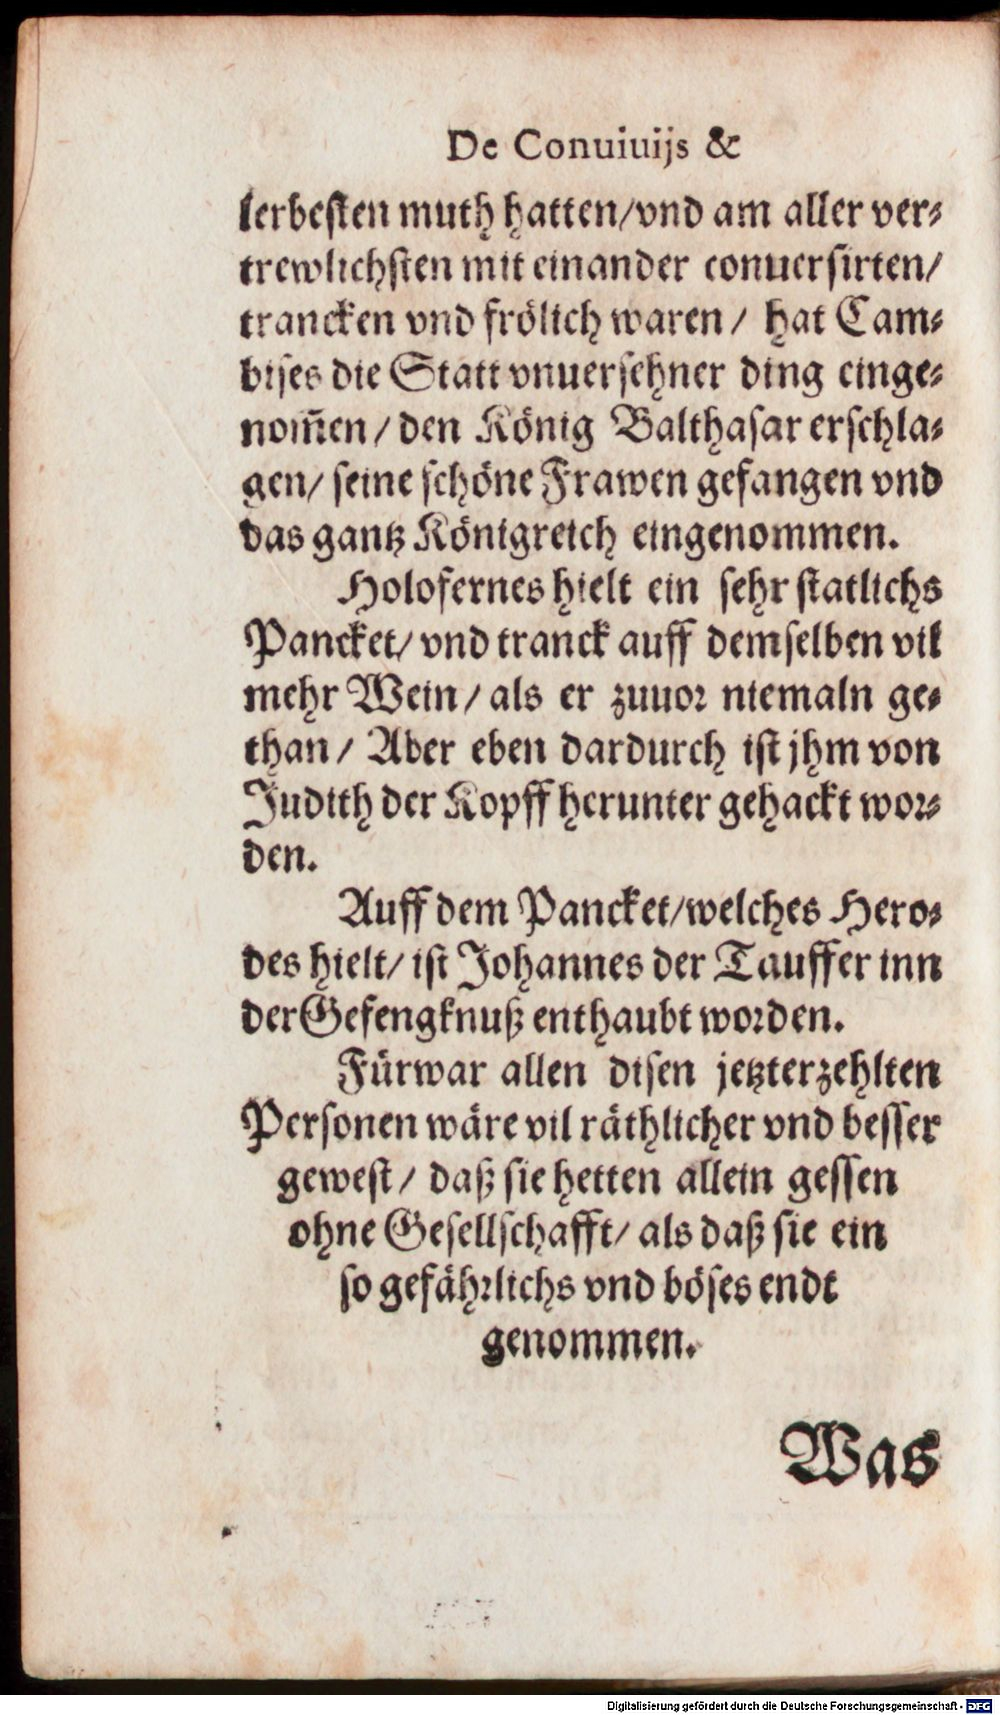 De Conuiuijs &
lerbesten muth hatten/vnd am aller ver-
trewlichsten mit einander conuersirten/
trancken vnd frölich waren / hat Cam-
bises die Statt vnuersehner ding einge-
nom̃en / den König Balthasar erschla-
gen/ seine schöne Frawen gefangen vnd
das gantz Königreich eingenommen.
Holofernes hielt ein sehr statlichs
Pancket/ vnd tranck auff demselben vil
mehr Wein / als er zuuor niemaln ge-
than / Aber eben dardurch ist jhm von
Judith der Kopff herunter gehackt wor-
den.
Auff dem Pancket/welches Hero-
des hielt/ ist Johannes der Tauffer inn
der Gefengknuß enthaubt worden.
Fürwar allen disen jetzterzehlten
Personen wäre vil räthlicher vnd besser
gewest / daß sie hetten allein gessen
ohne Gesellschafft/ als daß sie ein
so gefährlichs vnd böses endt
genommen.
Was
Digitalisierung gefördert durch die Deutsche Forschungsgemeinschaft - DFG